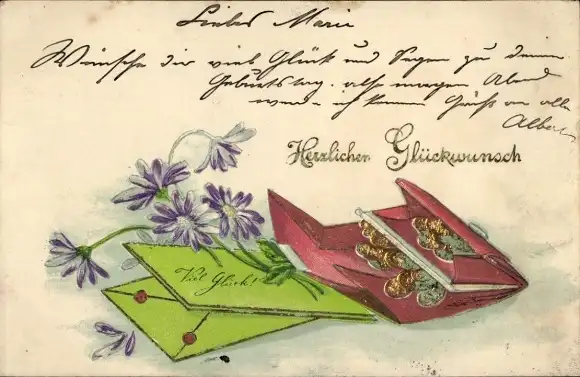 Liebe Marie
Wünsche dir viel Glück und Segen zu deinem
Geburtstag. also morgen Abend
werde ich kommen Grüß an alle
Albert
Herzlichen Glückwunsch
Viel Glück!